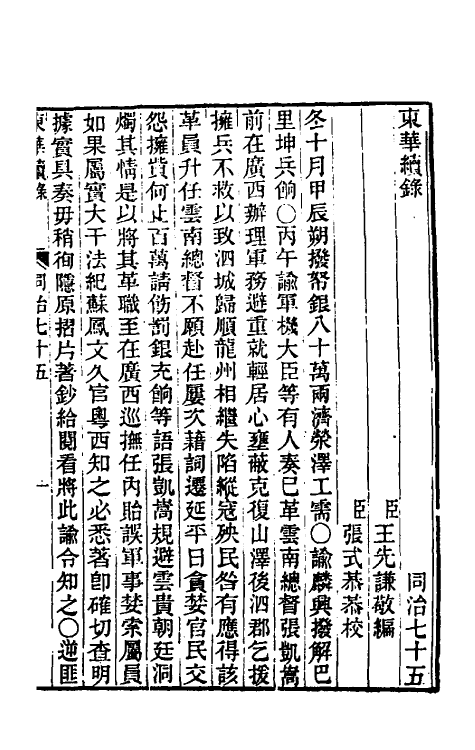 東華續錄　同治七十五
臣王先謙敬編
臣張式恭恭校
冬十月甲辰朔撥帑銀八十萬兩濟滎澤工需○諭麟興撥解巴
里坤兵餉○丙午諭軍機大臣等有人奏已革雲南總督張凱嵩
前在廣西辦理軍務避重就輕居心壅蔽克復山澤後泗郡乞援
擁兵不救以致泗城歸順龍州相繼失陷縱寇殃民咎有應得該
革員升任雲南總督不願赴任屢次藉詞遷延平日貪婪官民交
怨擁貲何止百萬請飭罰銀充餉等語張凱嵩規避雲貴朝廷洞
燭其情是以將其革職至在廣西巡撫任內貽誤軍事婪索屬員
如果屬實大干法紀蘇鳳文久官粵西知之必悉著卽確切查明
據實具奏毋稍徇隱原摺片著鈔給閱看將此諭令知之○逆匪
東華續錄　同治七十五　一